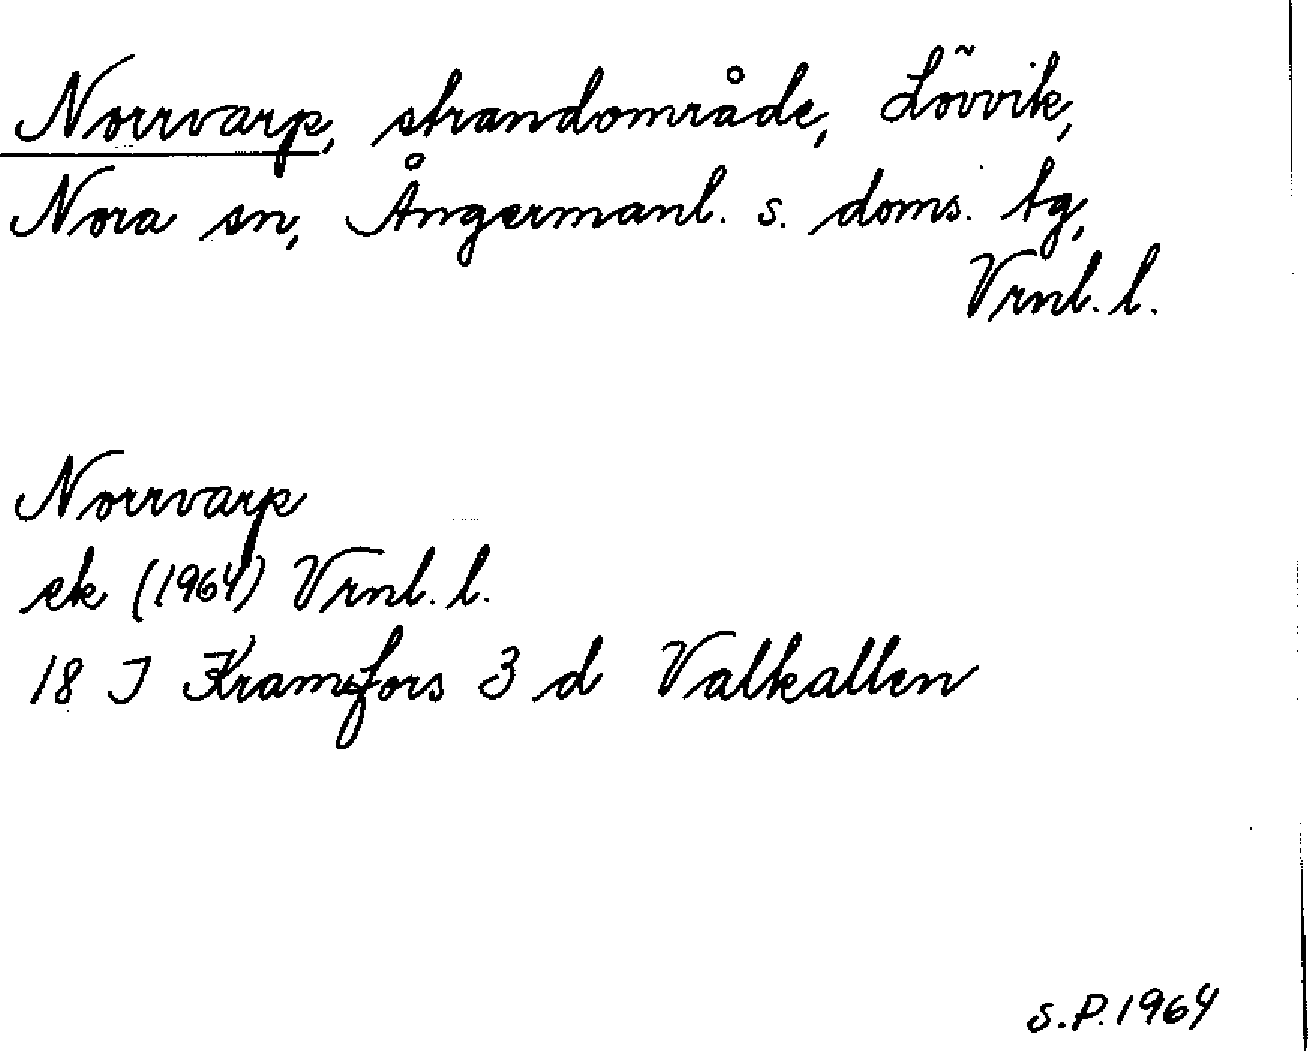 Norrvarp, strandområde, Lövvik,
Nora sn, Ångermanl. s. doms. tg,
Vrnl. l.
Norrvarp
ek (1964) Vrnl. l.
18 J Kramfors 3 d Valkallen
S.P. 1964